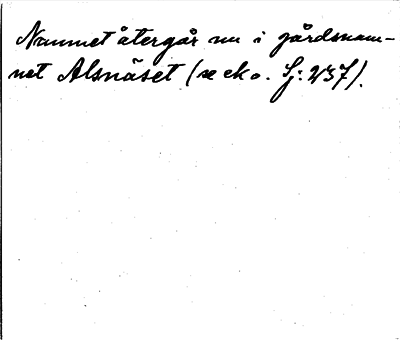 Namnet återgår nu i gårdsnam-
net Alsnäset (se eko. Sj: 237).